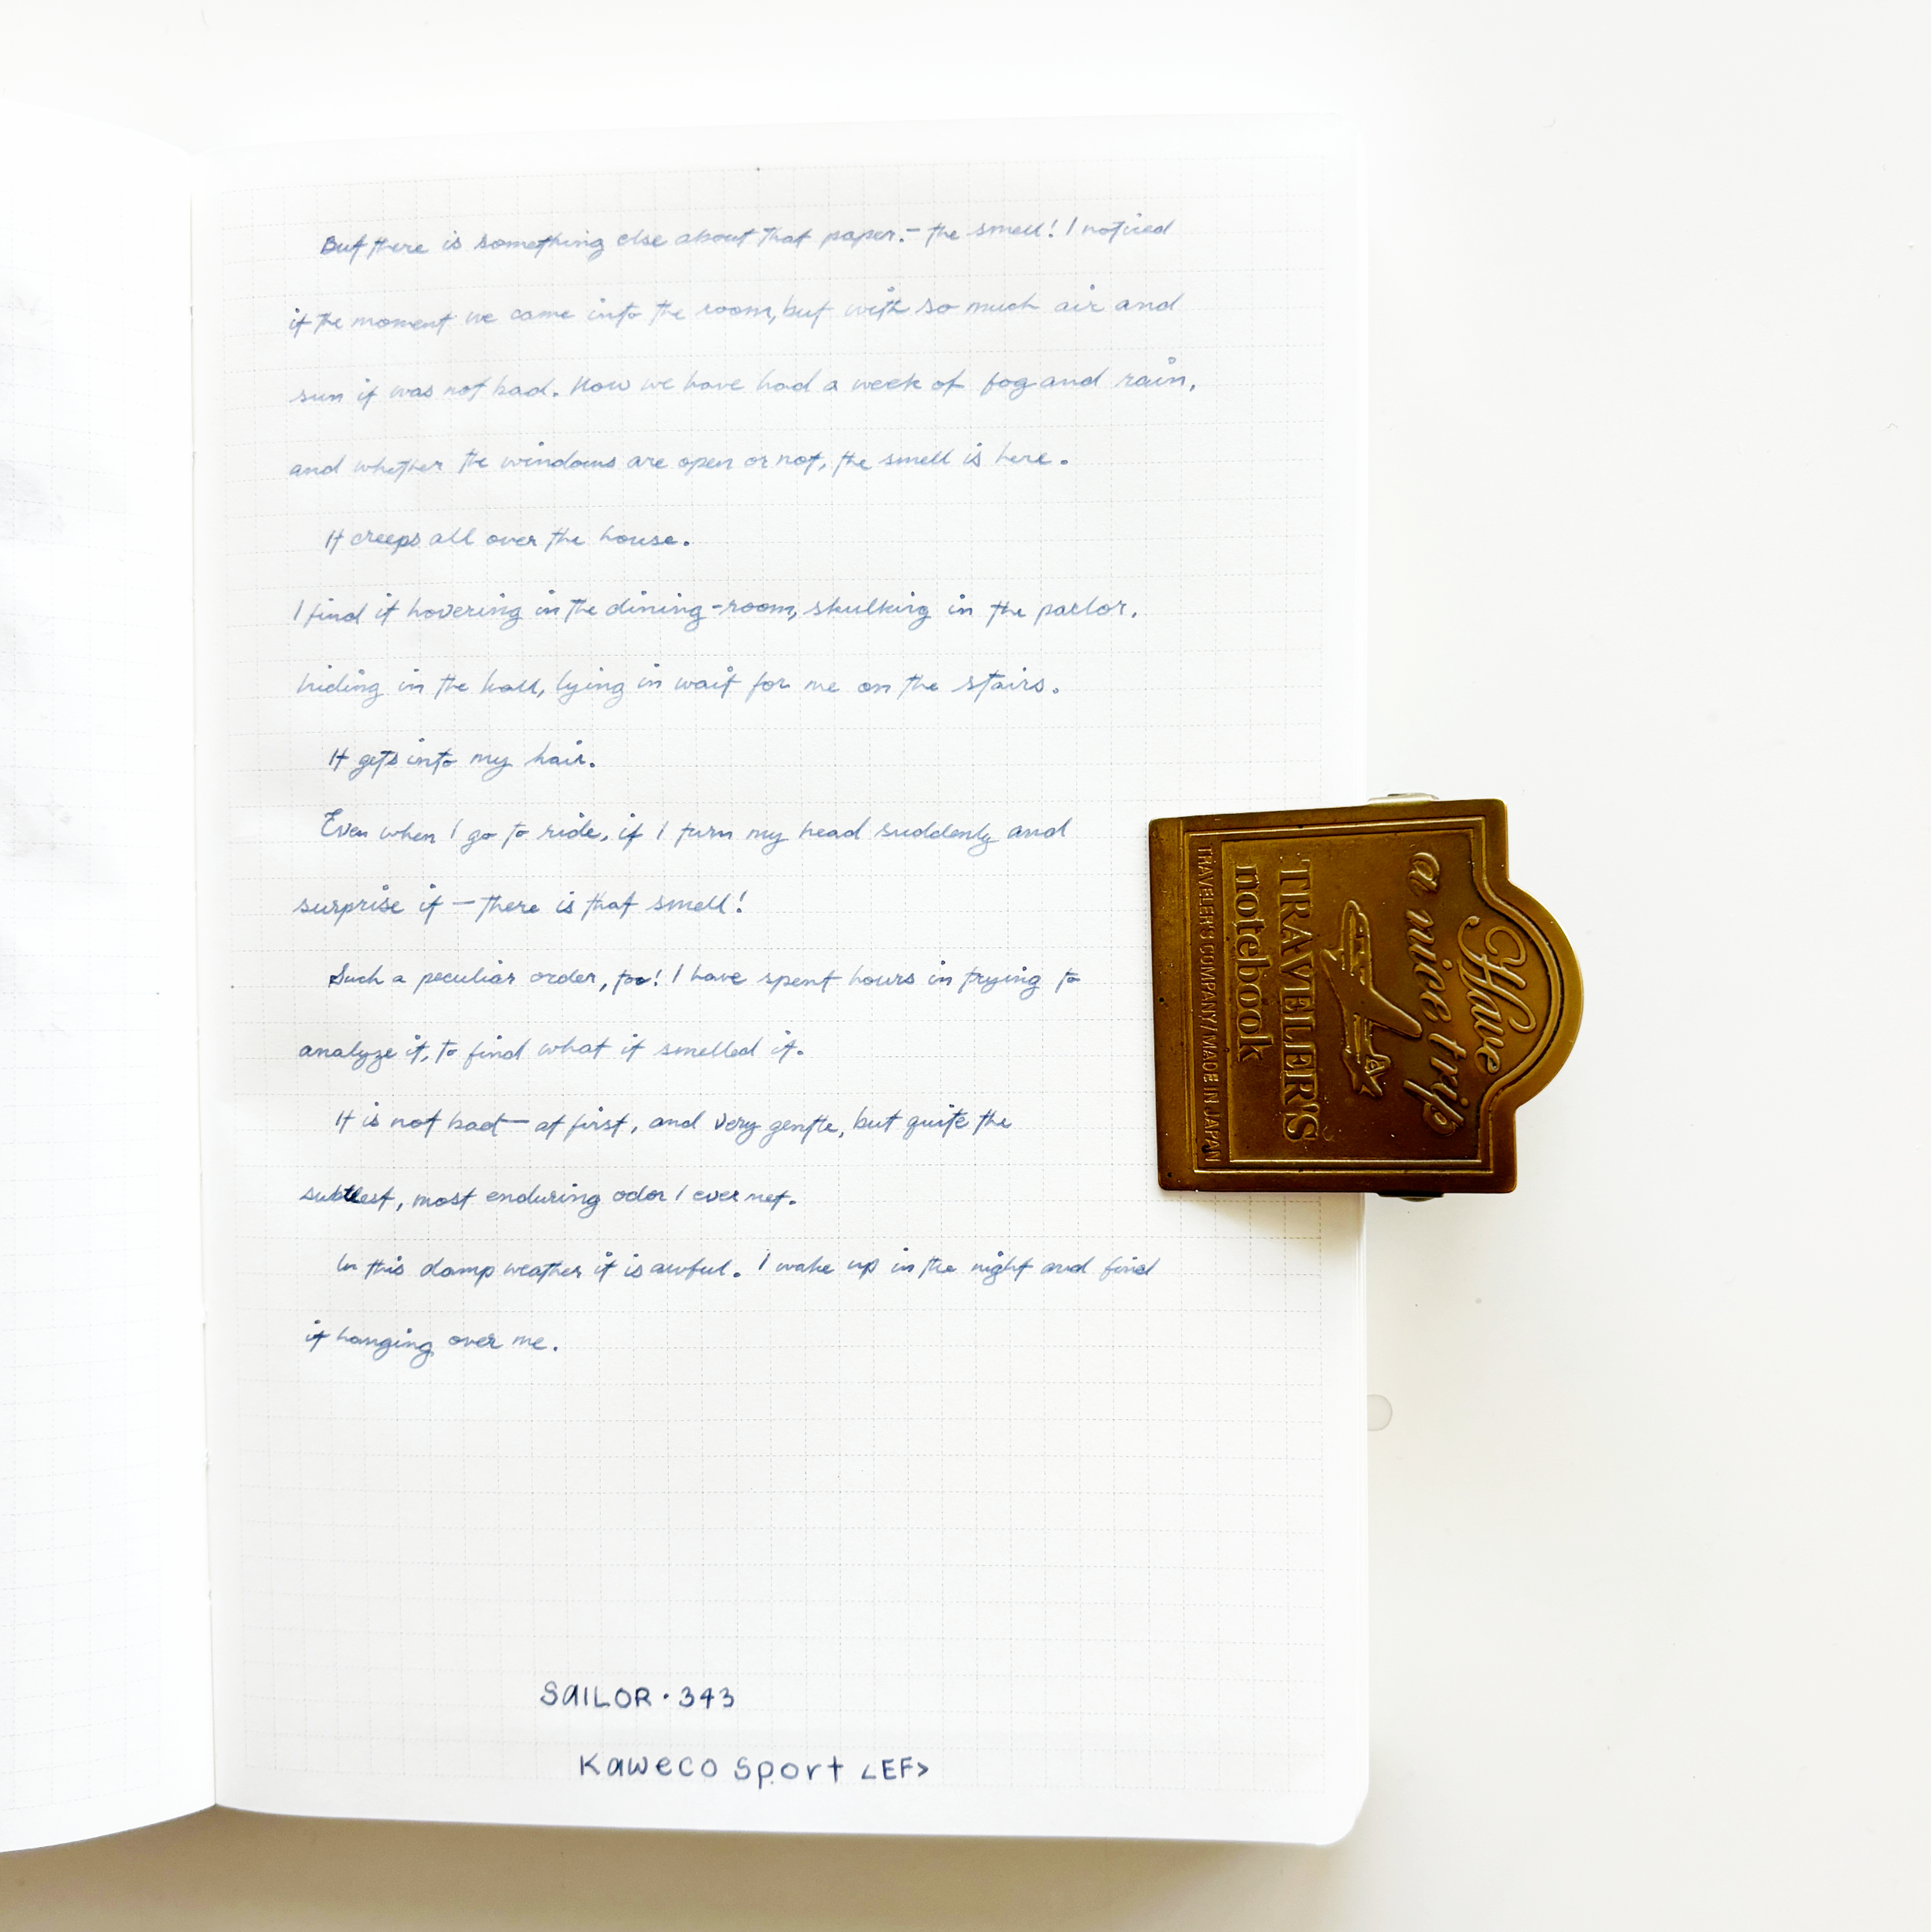 But there is something else about that paper.— the smell! I noticed
it the moment we came into the room, but with so much air and
sun it was not bad. Now we have had a week of fog and rain,
and whether the windows are open or not, the smell is here.
It creeps all over the house.
I find it hovering in the dining-room, skulking in the parlor,
hiding in the hall, lying in wait for me on the stairs.
It gets into my hair.
Even when I go to ride, if I turn my head suddenly and
surprise it — there is that smell!
Such a peculiar order, too! I have spent hours in trying to
analyze it, to find what it smelled it.
It is not bad — at first, and very gentle, but quite the
subtlest, most enduring odor I ever met.
In this damp weather it is awful. I wake up in the night and find
it hanging over me.
SAILOR · 343
Kaweco Sport <EF>
Have
a nice trip
TRAVELER'S
notebook
TRAVELER'S COMPANY/MADE IN JAPAN